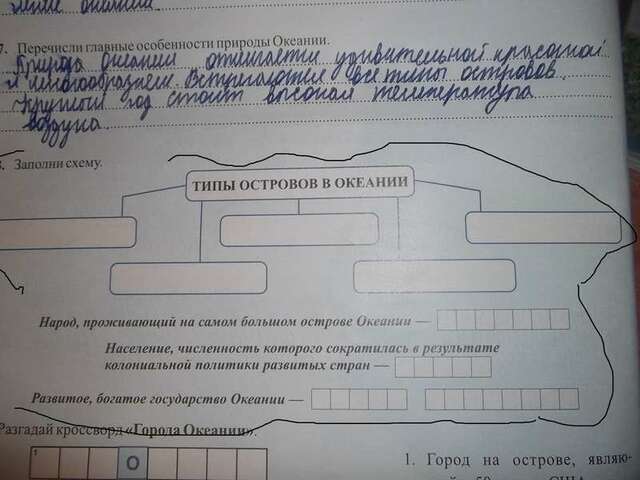 7. Перечисли главные особенности природы Океании.
Природа океании отличается удивительной красотой
и многообразием. Встречаются все типы островов.
круглый год стоит высокая температура
воздуха
8. Заполни схему.
ТИПЫ ОСТРОВОВ В ОКЕАНИИ
Народ, проживающий на самом большом острове Океании —
Население, численность которого сократилась в результате
колониальной политики развитых стран —
Развитое, богатое государство Океании —
Разгадай кроссворд «Города Океании».
1
О
1. Город на острове, являю-
США